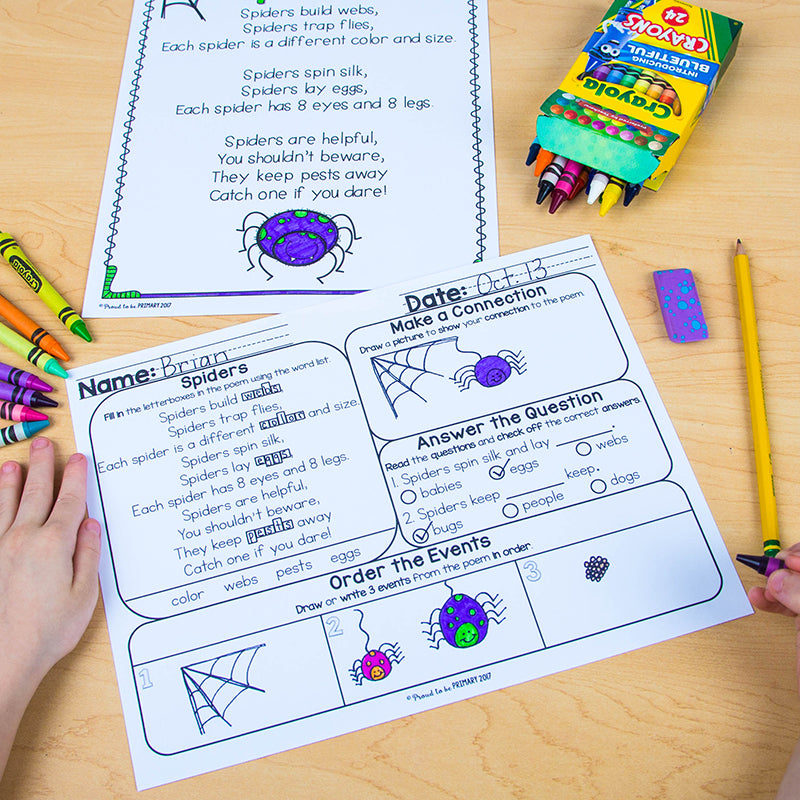 Spiders build webs,
Spiders trap flies,
Each spider is a different color and size.
Spiders spin silk,
Spiders lay eggs,
Each spider has 8 eyes and 8 legs.
Spiders are helpful,
You shouldn't beware,
They keep pests away
Catch one if you dare!
© Proud to be PRIMARY 2017
CRAYONS 24
INTRODUCING
BLUETIFUL
Crayola
Crayola
Name: Brian
Date: Oct. 13
Spiders
Fill in the letterboxes in the poem using the word list.
Spiders build webs
Spiders trap flies,
Each spider is a different color and size.
Spiders spin silk,
Spiders lay eggs,
Each spider has 8 eyes and 8 legs.
Spiders are helpful,
You shouldn't beware,
They keep pests away
Catch one if you dare!
color webs pests eggs
Make a Connection
Draw a picture to show your connection to the poem.
Answer the Question
Read the questions and check off the correct answers.
1. Spiders spin silk and lay ________.
babies eggs webs
2. Spiders keep ________ keep.
bugs people dogs
Order the Events
Draw or write 3 events from the poem in order.
1 2 3
© Proud to be PRIMARY 2017